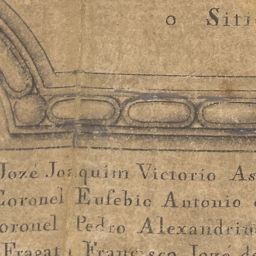 o Siti
Jozé Joaquim Victorio As
Coronel Eusebio Antonio
Coronel Pedro Alexandrin
Fragat Francisco Jozé de